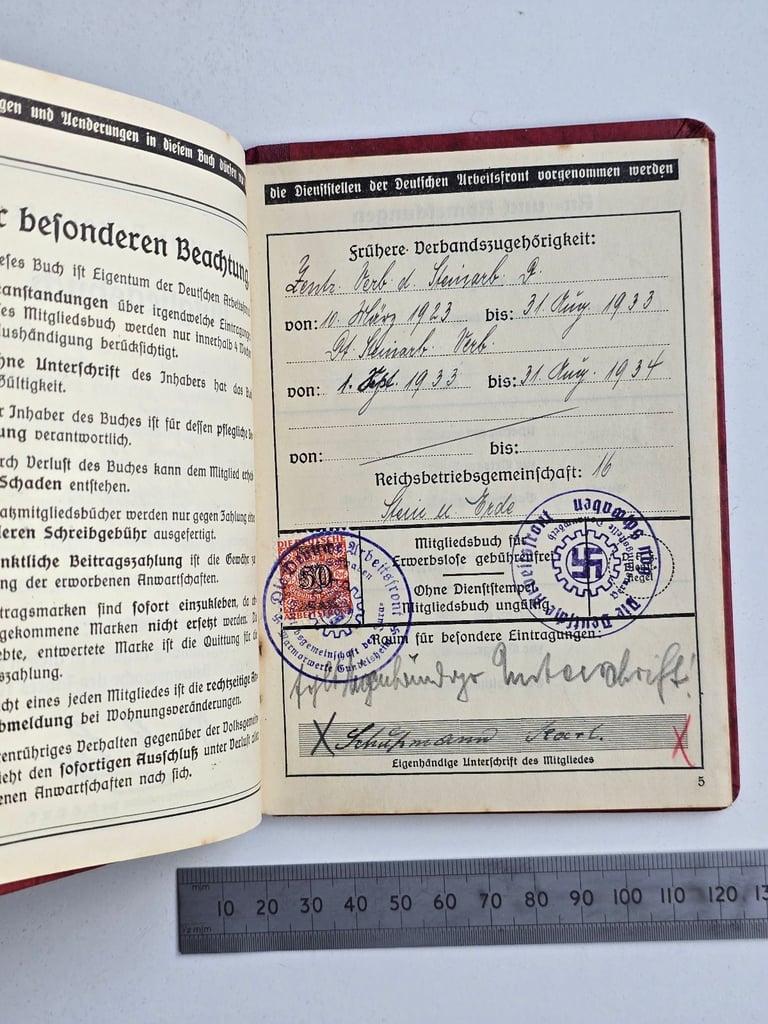 gen und Aenderungen in diesem Buch dürfen nur
r besonderen Beachtung
eses Buch ist Eigentum der Deutschen Arbeitsfront
eanstandungen über irgendwelche Eintragungen
es Mitgliedsbuch werden nur innerhalb 4 Wochen
ushändigung berücksichtigt.
hne Unterschrift des Inhabers hat das Buch
ültigkeit.
r Inhaber des Buches ist für dessen pflegliche
ung verantwortlich.
rch Verlust des Buches kann dem Mitglied
Schaden entstehen.
atzmitgliedsbücher werden nur gegen Zahlung
deren Schreibgebühr ausgefertigt.
nktliche Beitragszahlung ist die Gewähr
ng der erworbenen Anwartschaften.
tragsmarken sind sofort einzukleben, da
gekommene Marken nicht ersetzt werden.
ebte, entwertete Marke ist die Quittung für
szahlung.
icht eines jeden Mitgliedes ist die rechtzeitige
bmeldung bei Wohnungsveränderungen.
renrühriges Verhalten gegenüber der Volksgemein
ieht den sofortigen Ausschluß unter Verlust
enen Anwartschaften nach sich.
die Dienststellen der Deutschen Arbeitsfront vorgenommen werden
Frühere Verbandszugehörigkeit:
Zentr. Verb. d. Steinarb. D.
von: 10. März 1923 bis: 31. Aug. 1933
Dt. Steinarb. Verb.
von: 1. Sept. 1933 bis: 31. Aug. 1934
von: bis:
Reichsbetriebsgemeinschaft: 16
Stein u. Erde
Mitgliedsbuch für
Erwerbslose gebührenfrei
Ohne Dienststempel
Mitgliedsbuch ungültig
Dienst
siegel
DIE DEUTSCHE
50
ARBEITSFRONT
Die Deutsche Arbeitsfront
Marmorwerke Gundelsheim
Die Deutsche Arbeitsfront
Gau Schwaben
Raum für besondere Eintragungen:
fehlt eigenhändige Unterschrift!
X Schuhmann Karl. X
Eigenhändige Unterschrift des Mitgliedes
5
mm
10 20 30 40 50 60 70 80 90 100 110 120 13
½ mm